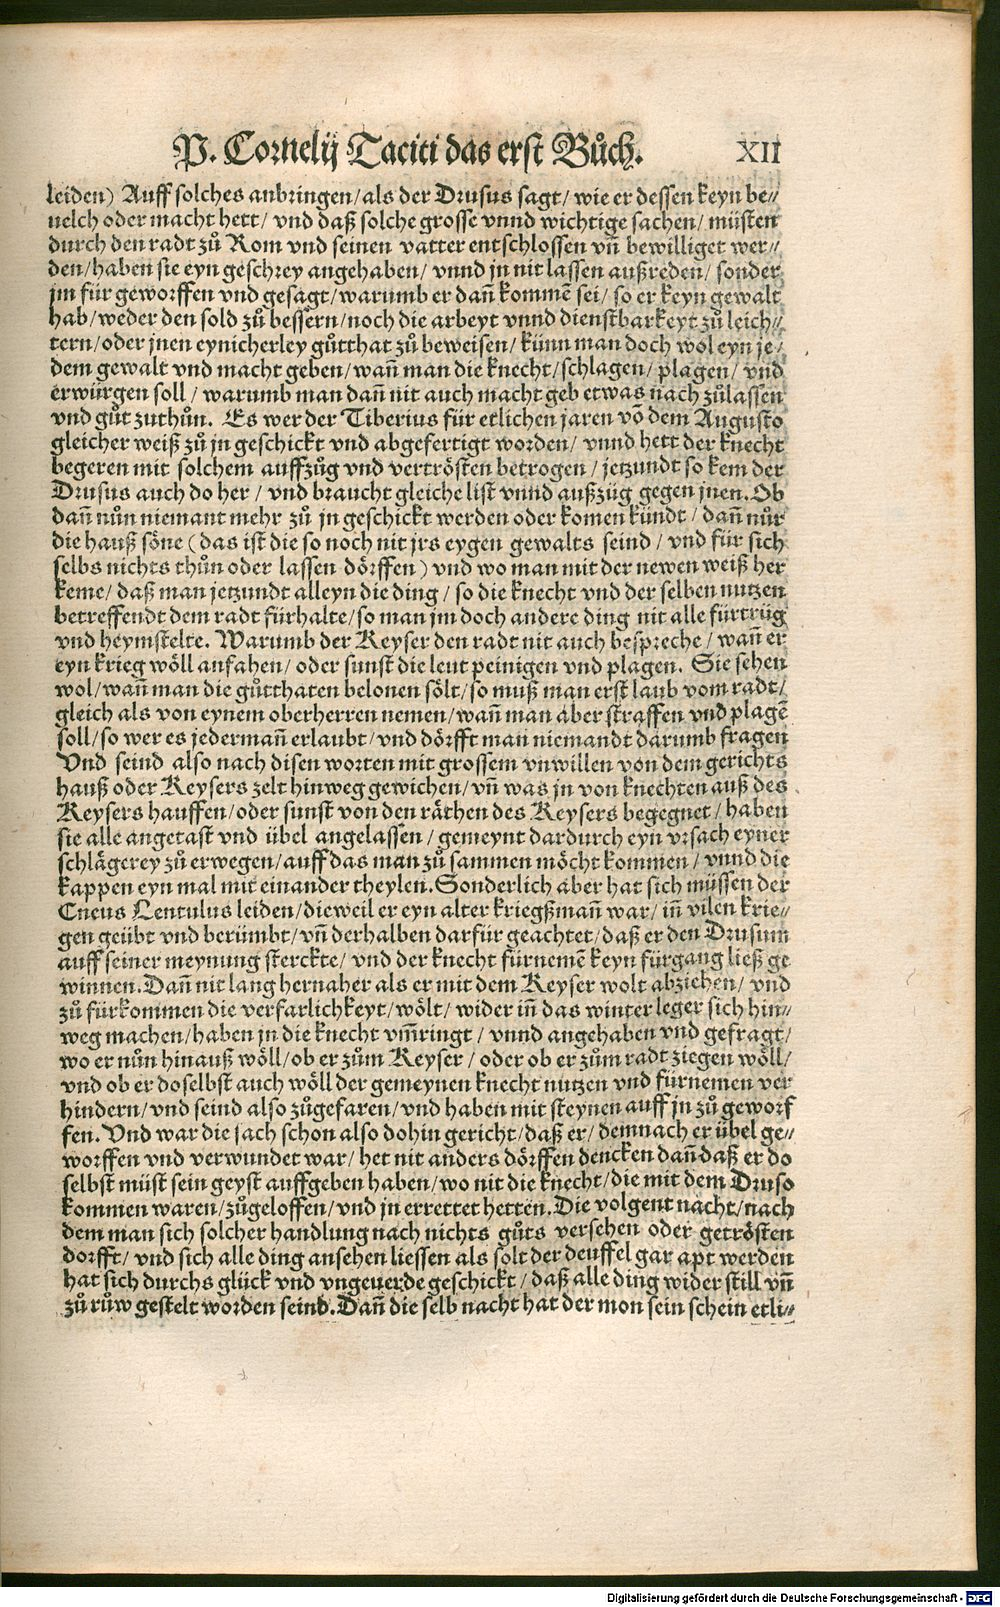 P. Cornelij Taciti das erst Bůch. XII
leiden) Auff solches anbringen/als der Drusus sagt/ wie er dessen keyn be⸗
uelch oder macht hett/ vnd daß solche grosse vnnd wichtige sachen/ müsten
durch den radt zů Rom vnd seinen vatter entschlossen vñ bewilliget wer⸗
den/haben sie eyn geschrey angehaben/ vnnd jn nit lassen außreden/ sonder
jm für geworffen vnd gesagt/warumb er dañ kommē sei/ so er keyn gewalt
hab/weder den sold zů bessern/noch die arbeyt vnnd dienstbarkeyt zů leich⸗
tern/oder jnen eynicherley gůtthat zů beweisen/ künn man doch wol eyn je⸗
dem gewalt vnd macht geben/wañ man die knecht/schlagen/ plagen/ vnd
erwürgen soll/ warumb man dañ nit auch macht geb etwas nach zůlassen
vnd gůt zuthůn. Es wer der Tiberius für etlichen jaren võ dem Augusto
gleicher weiß zů jn geschickt vnd abgefertigt worden/ vnnd hett der knecht
begeren mit solchem auffzůg vnd vertrösten betrogen/ jetzundt so kem der
Drusus auch do her/ vnd braucht gleiche list vnnd außzüg gegen jnen. Ob
dañ nůn niemant mehr zů jn geschickt werden oder komen kündt/ dañ nůr
die hauß söne (das ist die so noch nit jrs eygen gewalts seind/ vnd für sich
selbs nichts thůn oder lassen dörffen) vnd wo man mit der newen weiß her
keme/ daß man jetzundt alleyn die ding/ so die knecht vnd der selben nutzen
betreffendt dem radt fürhalte/so man jm doch andere ding nit alle fürtrüg
vnd heymstelte. Warumb der Keyser den radt nit auch bespreche/ wañ er
eyn krieg wöll anfahen/ oder sunst die leut peinigen vnd plagen. Sie sehen
wol/wañ man die gůtthaten belonen sölt/so muß man erst laub vom radt/
gleich als von eynem oberherren nemen/wañ man aber straffen vnd plagē
soll/so wer es jedermañ erlaubt/vnd dörfft man niemandt darumb fragen
Vnd seind also nach disen worten mit grossem vnwillen von dem gerichts
hauß oder Keysers zelt hinweg gewichen/ vñ was jn von knechten auß des
Keysers hauffen/oder sunst von den räthen des Keysers begegnet/ haben
sie alle angetast vnd übel angelassen/ gemeynt dardurch eyn vrsach eyner
schlägerey zů erwegen/auff das man zů sammen möcht kommen/ vnnd die
kappen eyn mal mit einander theylen. Sonderlich aber hat sich müssen der
Cneus Lentulus leiden/dieweil er eyn alter kriegßmañ war/ iñ vilen krie⸗
gen geübt vnd berümbt/vñ derhalben darfür geachtet/daß er den Drusum
auff seiner meynung sterckte/ vnd der knecht fürnemē keyn fürgang ließ ge
winnen. Dañ nit lang hernaher als er mit dem Keyser wolt abziehen/ vnd
zů fürkommen die verfarlichkeyt/wölt/ wider iñ das winter leger sich hin⸗
weg machen/haben jn die knecht vm̃ringt/ vnnd angehaben vnd gefragt/
wo er nůn hinauß wöll/ob er zům Keyser/ oder ob er zům radt ziegen wöll/
vnd ob er doselbst auch wöll der gemeynen knecht nutzen vnd fürnemen ver
hindern/vnd seind also zůgefaren/vnd haben mit steynen auff jn zů geworf
fen. Vnd war die sach schon also dohin gericht/daß er/ demnach er übel ge⸗
worffen vnd verwundet war/ het nit anders dörffen dencken dañ daß er do
selbst müst sein geyst auffgeben haben/wo nit die knecht/die mit dem Druso
kommen waren/zůgeloffen/vnd jn errettet hetten. Die volgent nacht/nach
dem man sich solcher handlung nach nichts gůts versehen oder getrösten
dorfft/ vnd sich alle ding ansehen liessen als solt der deuffel gar apt werden
hat sich durchs glück vnd vngeuerde geschickt/ daß alle ding wider still vñ
zů růw gestelt worden seind. Dañ die selb nacht hat der mon sein schein etli⸗
Digitalisierung gefördert durch die Deutsche Forschungsgemeinschaft - DFG